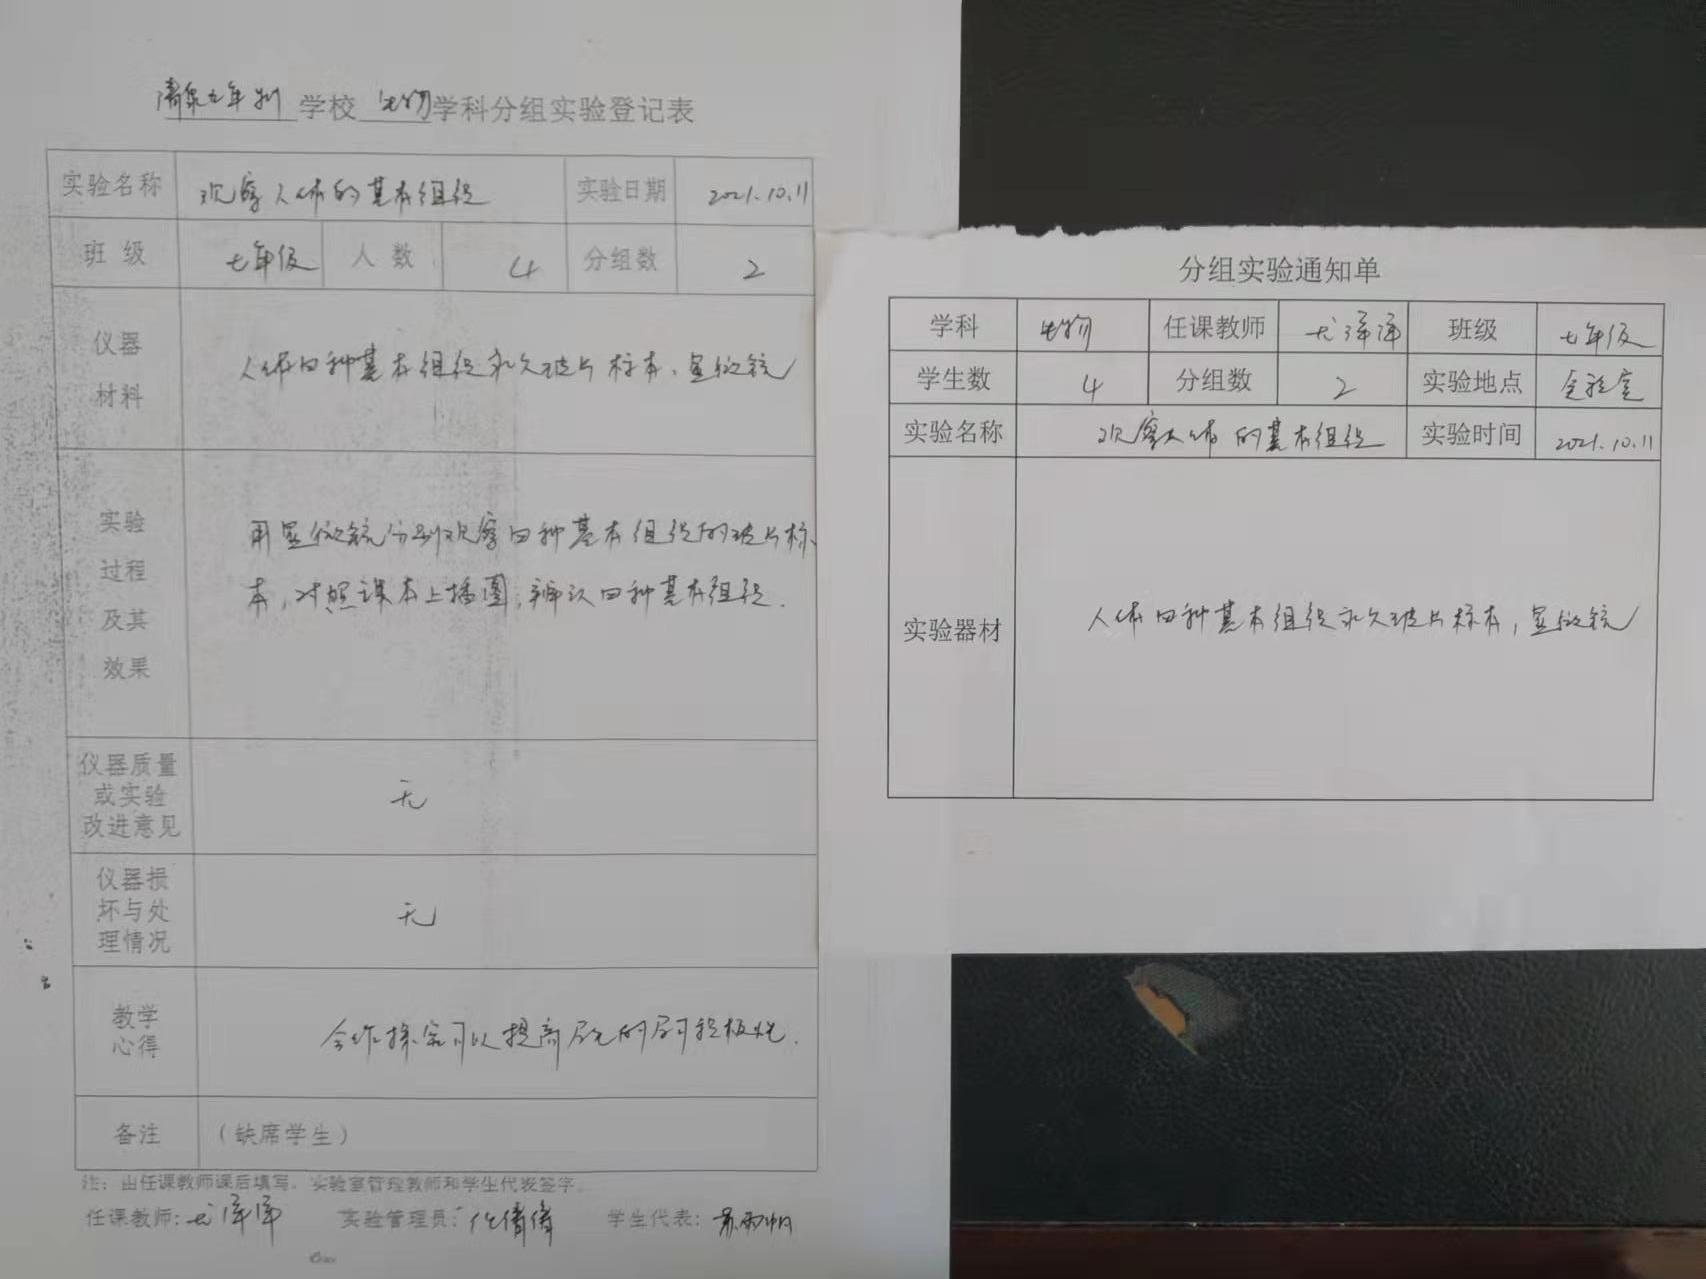 清泉九年制学校生物学科分组实验登记表
实验名称 观察人体的基本组织 实验日期 2021.10.11
班 级 七年级 人 数 4 分组数 2
仪器
材料
人体四种基本组织永久玻片标本、显微镜
实验
过程
及其
效果
用显微镜分别观察四种基本组织的玻片标
本,对照课本上插图,辨认四种基本组织.
仪器质量
或实验
改进意见
无
仪器损
坏与处
理情况
无
教学
心得
合作探究可以提高学生的学习积极性.
备注 (缺席学生)
注:由任课教师课后填写,实验室管理教师和学生代表签字。
任课教师: 实验管理员: 学生代表:
分组实验通知单
学科 生物 任课教师 班级 七年级
学生数 4 分组数 2 实验地点 实验室
实验名称 观察人体的基本组织 实验时间 2021.10.11
实验器材 人体四种基本组织永久玻片标本,显微镜